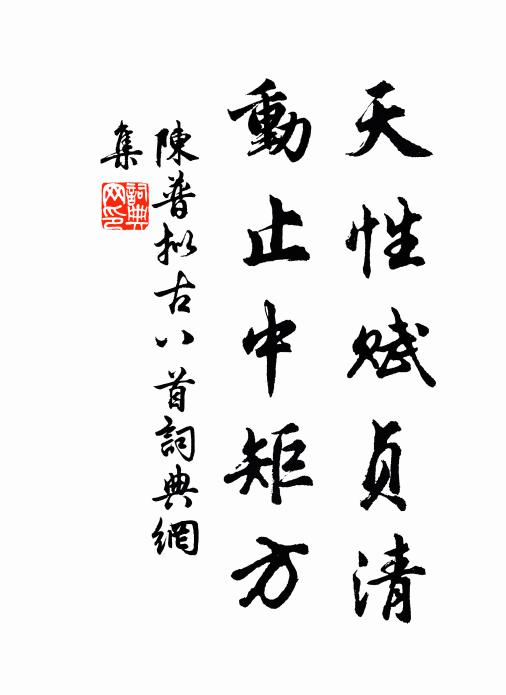 天性赋贞清
動止中矩方
陳普拟古八首詞典網
集
詞典
网印